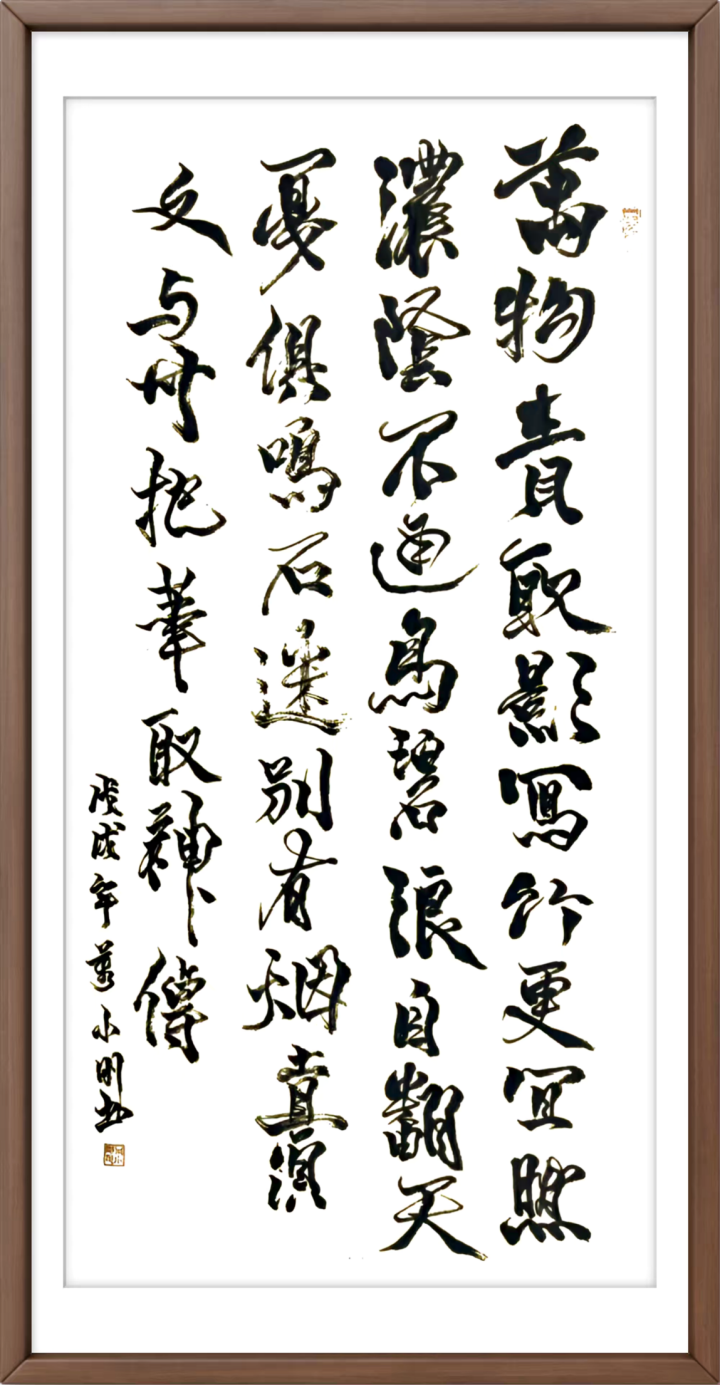 萬物責取影寫竹更宜然
濃陰不通鳥碧浪自翻天
戛俱鳴石迷別有烟直須
文与可把筆取神傳
戌年小明書